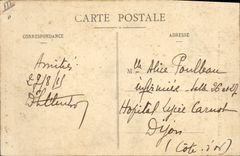 CARTE POSTALE
CORRESPONDANCE
ADRESSE
Mlle Alice Poulleau
Infirmière Salle
Amitiés
Hopital Lycée Carnot
Dijon
(Côte d'or)